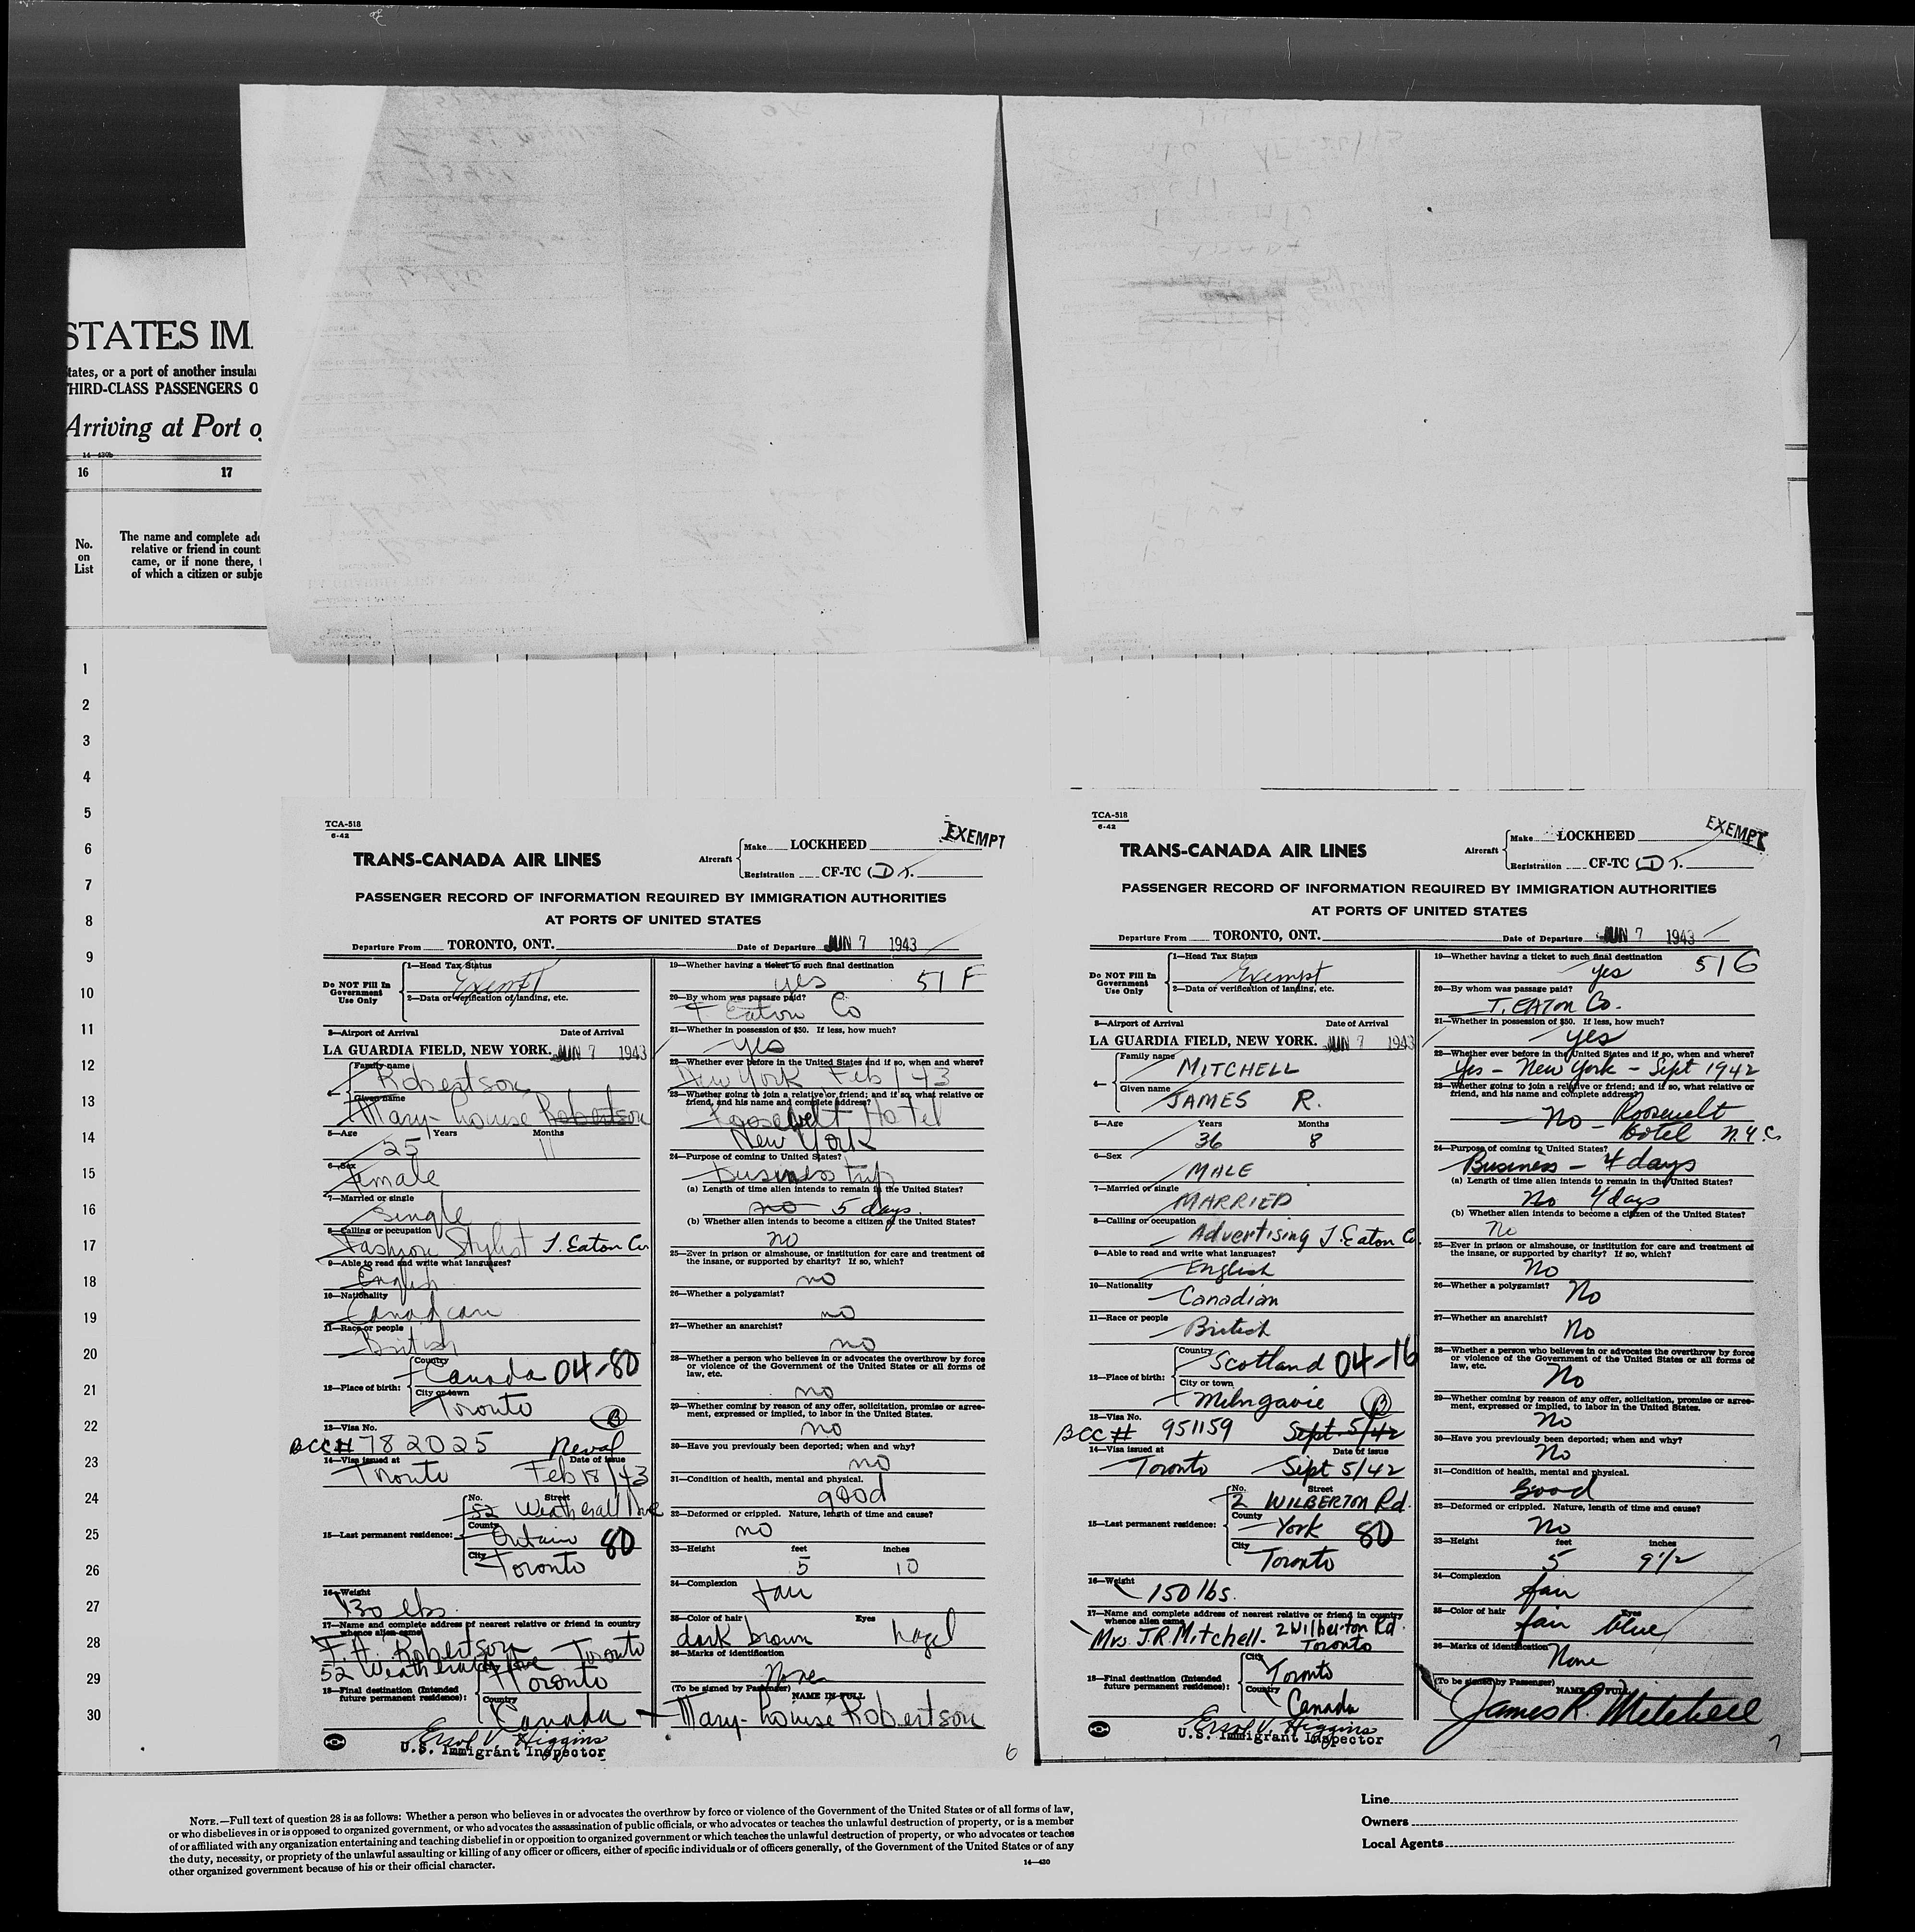 STATES IM
tates, or a port of another insula
THIRD-CLASS PASSENGERS O
Arriving at Port o
14—430b
16 17
No. on List
The name and complete add
relative or friend in count
came, or if none there,
of which a citizen or subje
1
2
3
4
5
6
7
8
9
10
11
12
13
14
15
16
17
18
19
20
21
22
23
24
25
26
27
28
29
30
TCA-518
6-42
EXEMPT
TRANS-CANADA AIR LINES
Aircraft
Make LOCKHEED
Registration CF-TC (D).
PASSENGER RECORD OF INFORMATION REQUIRED BY IMMIGRATION AUTHORITIES
AT PORTS OF UNITED STATES
Departure From TORONTO, ONT. Date of Departure JUN 7 1943
Do NOT Fill In
Government
Use Only
1—Head Tax Status
Exempt
2—Data or verification of landing, etc.
3—Airport of Arrival Date of Arrival
LA GUARDIA FIELD, NEW YORK. JUN 7 1943
4—
Family name
Robertson
Given name
Mary-Louise Robertson
5—Age Years Months
25 11
6—Sex
female
7—Married or single
single
8—Calling or occupation
Fashion Stylist T. Eaton Co
9—Able to read and write what languages?
English
10—Nationality
Canadian
11—Race or people
British
12—Place of birth:
Country
Canada 04-80
City or town
Toronto
B
13—Visa No.
BCC# 782025 Reval
14—Visa issued at Date of issue
Toronto Feb 18/43
15—Last permanent residence:
No. Street
52 Weatherall Ave
County
Ontario 80
City
Toronto
16—Weight
130 lbs.
17—Name and complete address of nearest relative or friend in country
whence alien came
F.A. Robertson Toronto
52 Weatherall Ave
18—Final destination (Intended
future permanent residence):
Toronto
Country
Canada
Errol V. Higgins
U.S. Immigrant Inspector
19—Whether having a ticket to such final destination
yes 51 F
20—By whom was passage paid?
T. Eaton Co
21—Whether in possession of $50. If less, how much?
yes
22—Whether ever before in the United States and if so, when and where?
New York Feb/43
23—Whether going to join a relative or friend; and if so, what relative or
friend, and his name and complete address?
Roosevelt Hotel
New York
24—Purpose of coming to United States?
business trip
(a) Length of time alien intends to remain in the United States?
no 5 days.
(b) Whether alien intends to become a citizen of the United States?
no
25—Ever in prison or almshouse, or institution for care and treatment of
the insane, or supported by charity? If so, which?
no
26—Whether a polygamist?
no
27—Whether an anarchist?
no
28—Whether a person who believes in or advocates the overthrow by force
or violence of the Government of the United States or all forms of
law, etc.
no
29—Whether coming by reason of any offer, solicitation, promise or agree-
ment, expressed or implied, to labor in the United States.
no
30—Have you previously been deported; when and why?
no
31—Condition of health, mental and physical.
good
32—Deformed or crippled. Nature, length of time and cause?
no
33—Height feet inches
5 10
34—Complexion
fair
35—Color of hair Eyes
dark brown hazel
36—Marks of identification
None
(To be signed by Passenger)
NAME IN FULL
Mary-Louise Robertson
6
TCA-518
6-42
EXEMPT
TRANS-CANADA AIR LINES
Aircraft
Make LOCKHEED
Registration CF-TC (D).
PASSENGER RECORD OF INFORMATION REQUIRED BY IMMIGRATION AUTHORITIES
AT PORTS OF UNITED STATES
Departure From TORONTO, ONT. Date of Departure JUN 7 1943
Do NOT Fill In
Government
Use Only
1—Head Tax Status
Exempt
2—Data or verification of landing, etc.
3—Airport of Arrival Date of Arrival
LA GUARDIA FIELD, NEW YORK. JUN 7 1943
4—
Family name
MITCHELL
Given name
JAMES R.
5—Age Years Months
36 8
6—Sex
MALE
7—Married or single
MARRIED
8—Calling or occupation
Advertising T. Eaton Co.
9—Able to read and write what languages?
English
10—Nationality
Canadian
11—Race or people
British
12—Place of birth:
Country
Scotland 04-16
City or town
Milngavie
B
13—Visa No.
BCC# 951159 Sept. 5/42
14—Visa issued at Date of issue
Toronto Sept 5/42
15—Last permanent residence:
No. Street
2 WILBERTON Rd.
County
York 80
City
Toronto
16—Weight
150 lbs.
17—Name and complete address of nearest relative or friend in country
whence alien came
Mrs. J.R. Mitchell - 2 Wilberton Rd.
Toronto
18—Final destination (Intended
future permanent residence):
City
Toronto
Country
Canada
Errol V. Higgins
U.S. Immigrant Inspector
19—Whether having a ticket to such final destination
yes 51G
20—By whom was passage paid?
T. EATON Co.
21—Whether in possession of $50. If less, how much?
yes
22—Whether ever before in the United States and if so, when and where?
Yes - New York - Sept 1942
23—Whether going to join a relative or friend; and if so, what relative or
friend, and his name and complete address?
No - Roosevelt
Hotel N.Y.C.
24—Purpose of coming to United States?
Business - 4 days
(a) Length of time alien intends to remain in the United States?
No 4 days
(b) Whether alien intends to become a citizen of the United States?
No
25—Ever in prison or almshouse, or institution for care and treatment of
the insane, or supported by charity? If so, which?
No
26—Whether a polygamist?
No
27—Whether an anarchist?
No
28—Whether a person who believes in or advocates the overthrow by force
or violence of the Government of the United States or all forms of
law, etc.
No
29—Whether coming by reason of any offer, solicitation, promise or agree-
ment, expressed or implied, to labor in the United States.
No
30—Have you previously been deported; when and why?
No
31—Condition of health, mental and physical.
Good
32—Deformed or crippled. Nature, length of time and cause?
No
33—Height feet inches
5 9 1/2
34—Complexion
fair
35—Color of hair Eyes
fair blue
36—Marks of identification
None
(To be signed by Passenger)
NAME IN FULL
James R. Mitchell
7
NOTE.—Full text of question 28 is as follows: Whether a person who believes in or advocates the overthrow by force or violence of the Government of the United States or of all forms of law,
or who disbelieves in or is opposed to organized government, or who advocates the assassination of public officials, or who advocates or teaches the unlawful destruction of property, or is a member
of or affiliated with any organization entertaining and teaching disbelief in or opposition to organized government or which teaches the unlawful destruction of property, or who advocates or teaches
the duty, necessity, or propriety of the unlawful assaulting or killing of any officer or officers, either of specific individuals or of officers generally, of the Government of the United States or of any
other organized government because of his or their official character.
14—430
Line
Owners
Local Agents